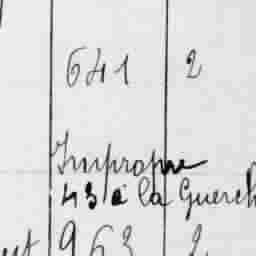 641 2
Impropre
43 à la Guerch
963 2